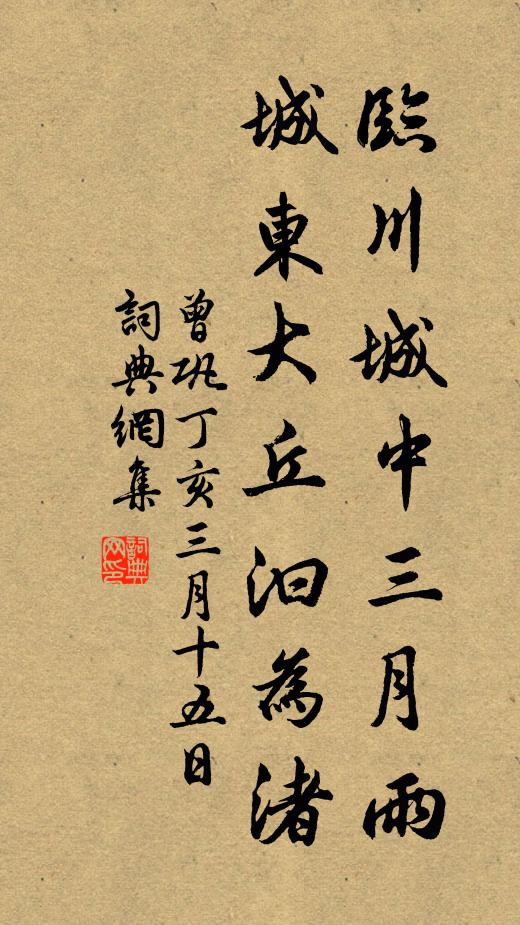 臨川城中三月雨
城東大丘汩為渚
曾巩丁亥三月十五日
詞典網集
詞典网印